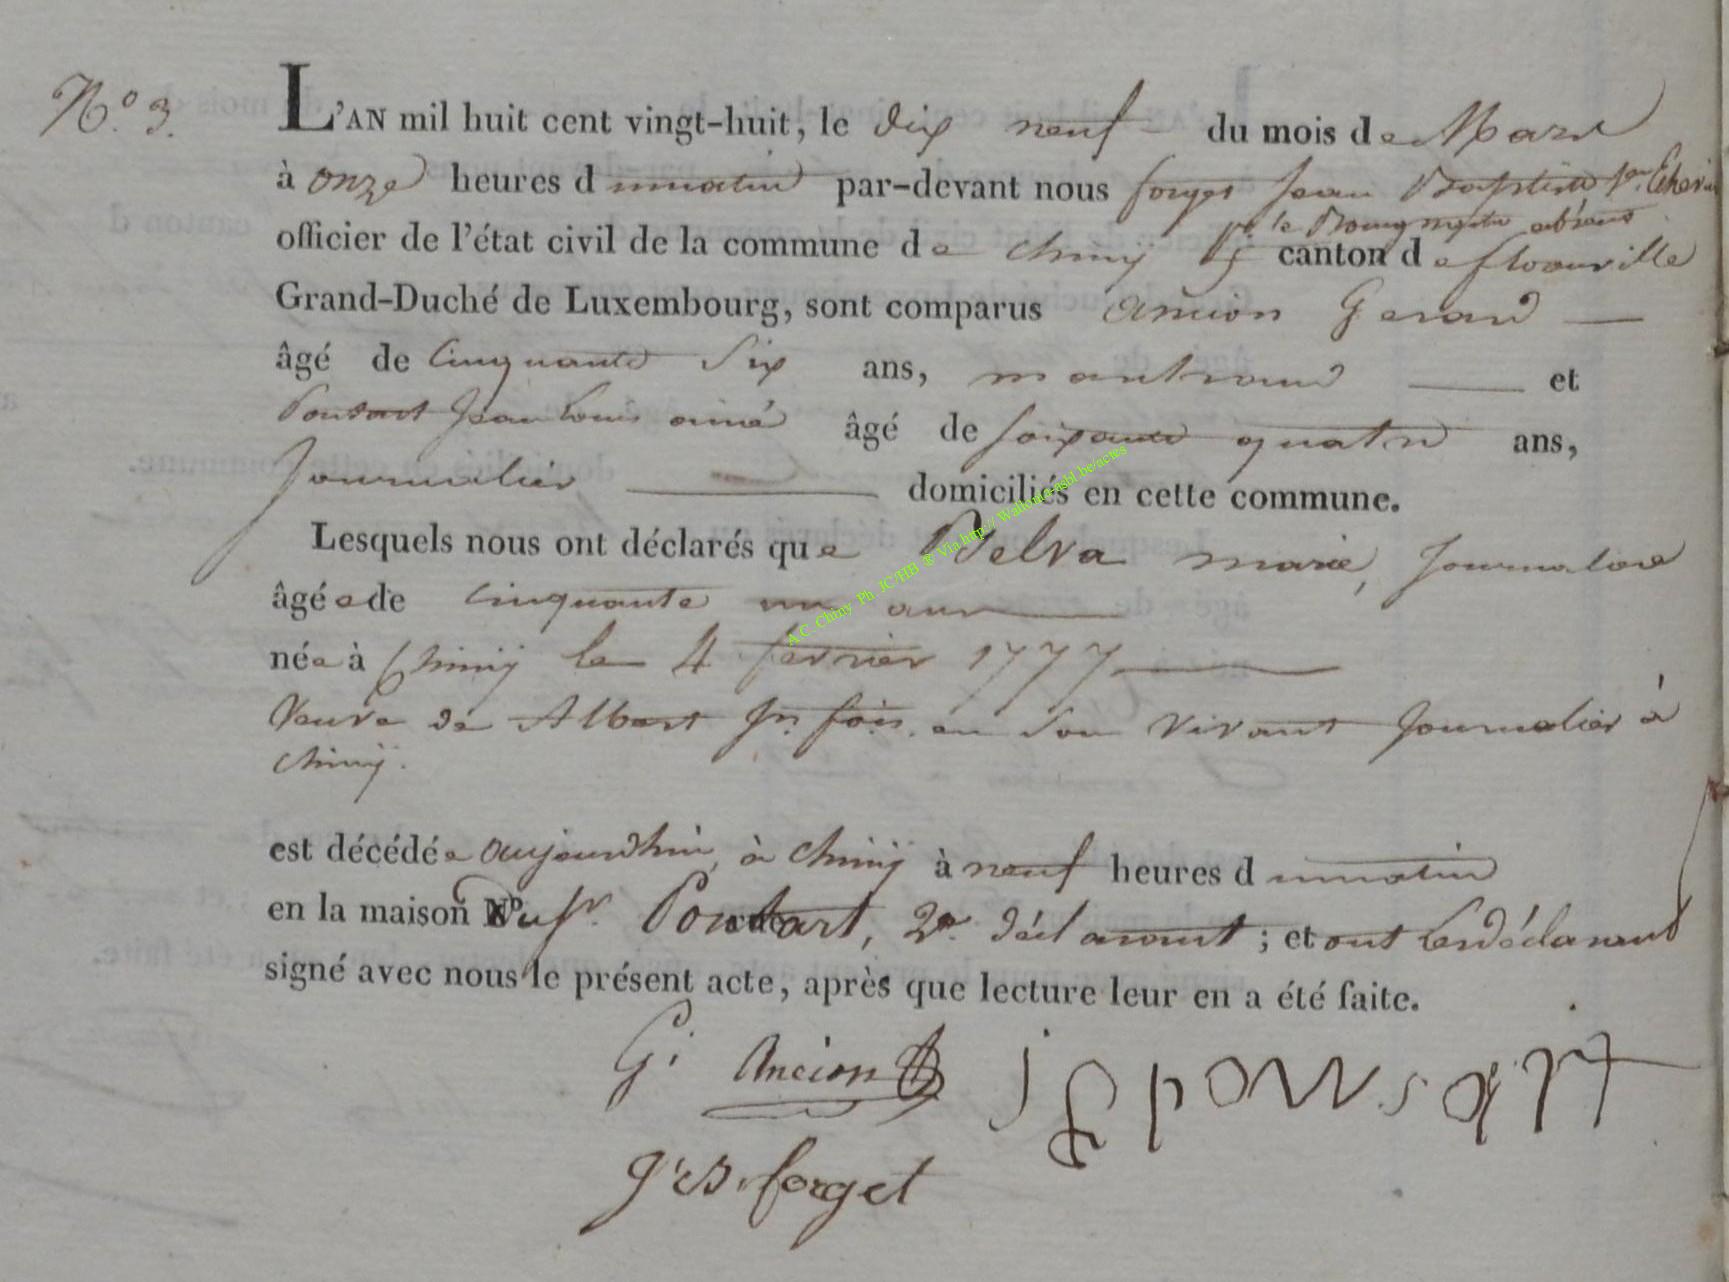 N.o 3.
L'AN mil huit cent vingt-huit, le dix neuf du mois de Mars
à onze heures d umatin par-devant nous forget Jean Baptiste 1er Echevin
pr le Bourgmestre absent
officier de l'état civil de la commune de Chiny canton de floranville
Grand-Duché de Luxembourg, sont comparus Ancion Gerard
âgé de Cinquante Six ans, marchand et
Ponsart Jean Louis ainé âgé de soixante quatre ans,
Journalier domiciliés en cette commune.
Lesquels nous ont déclarés que Delva marie, Journaliere
âgée de cinquante un ans
née à Chiny le 4 fevrier 1777
Veuve de Albert Jn fois. en son vivant Journalier à
Chiny.
est décédée aujourdhui, à Chiny à neuf heures d umatin
en la maison du sr Ponsart, 2e déclarant ; et ont les déclarants
signé avec nous le présent acte, après que lecture leur en a été faite.
G. Ancion
j l ponsart
J B. forget
A.C. Chiny Ph. JC/HB ® Via http:// Wallonia-asbl.be/actes